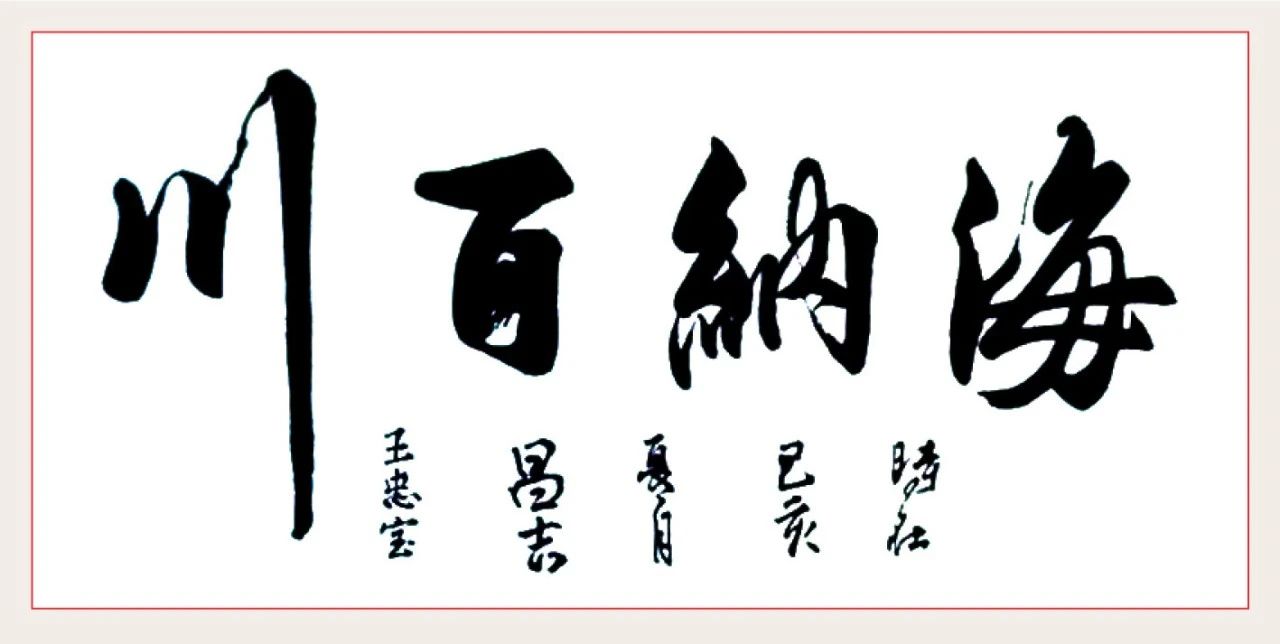 海納百川
時在
己亥
夏月
昌吉
王忠宝